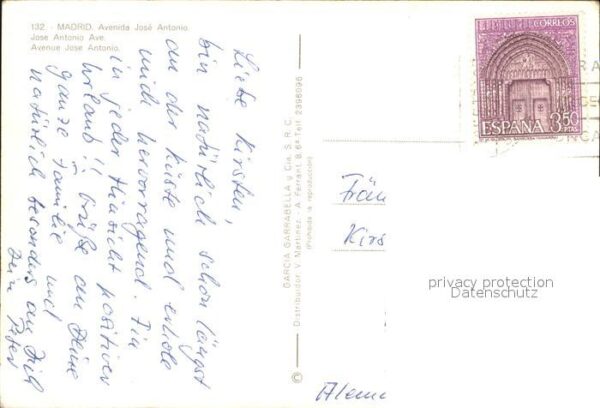 132. - MADRID. Avenida José Antonio.
Jose Antonio Ave.
Avenue Jose Antonio.
Liebe Kirsten,
bin natürlich schon längst
an der Küste und erhole
mich hervorragend. Ein
in jeder Hinsicht positiver
Urlaub! Grüße an Deine
ganze Familie und
natürlich besonders an Dich
Dein Peter
GARCIA GARRABELLA y Cia. S. R. C.
Distribuidor V. Martinez - A. Ferrant, 8, 6ª Telf. 2396096
(Prohibida la reproducción)
©
CORREOS
ESPAÑA 3,50
PTAS
Fräu
Kirs
Alema
privacy protection
Datenschutz